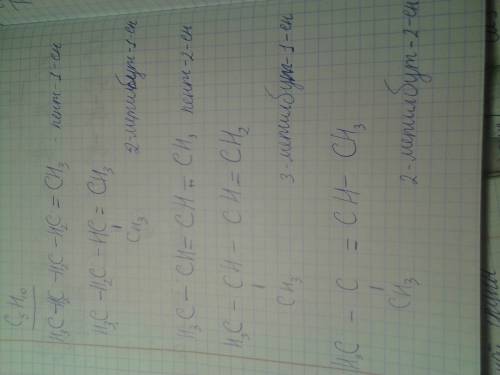 C₅H₁₀
H₃C-H₂C-H₂C-HC=CH₃ : пент-1-ен
H₃C-H₂C-HC=CH₃
CH₃
2-метилбут-1-ен
H₃C-CH=CH=CH₃ пент-2-ен
H₃C-CH-CH=CH₂
CH₃
3-метилбут-1-ен
H₃C-C=CH-CH₃
CH₃
2-метилбут-2-ен